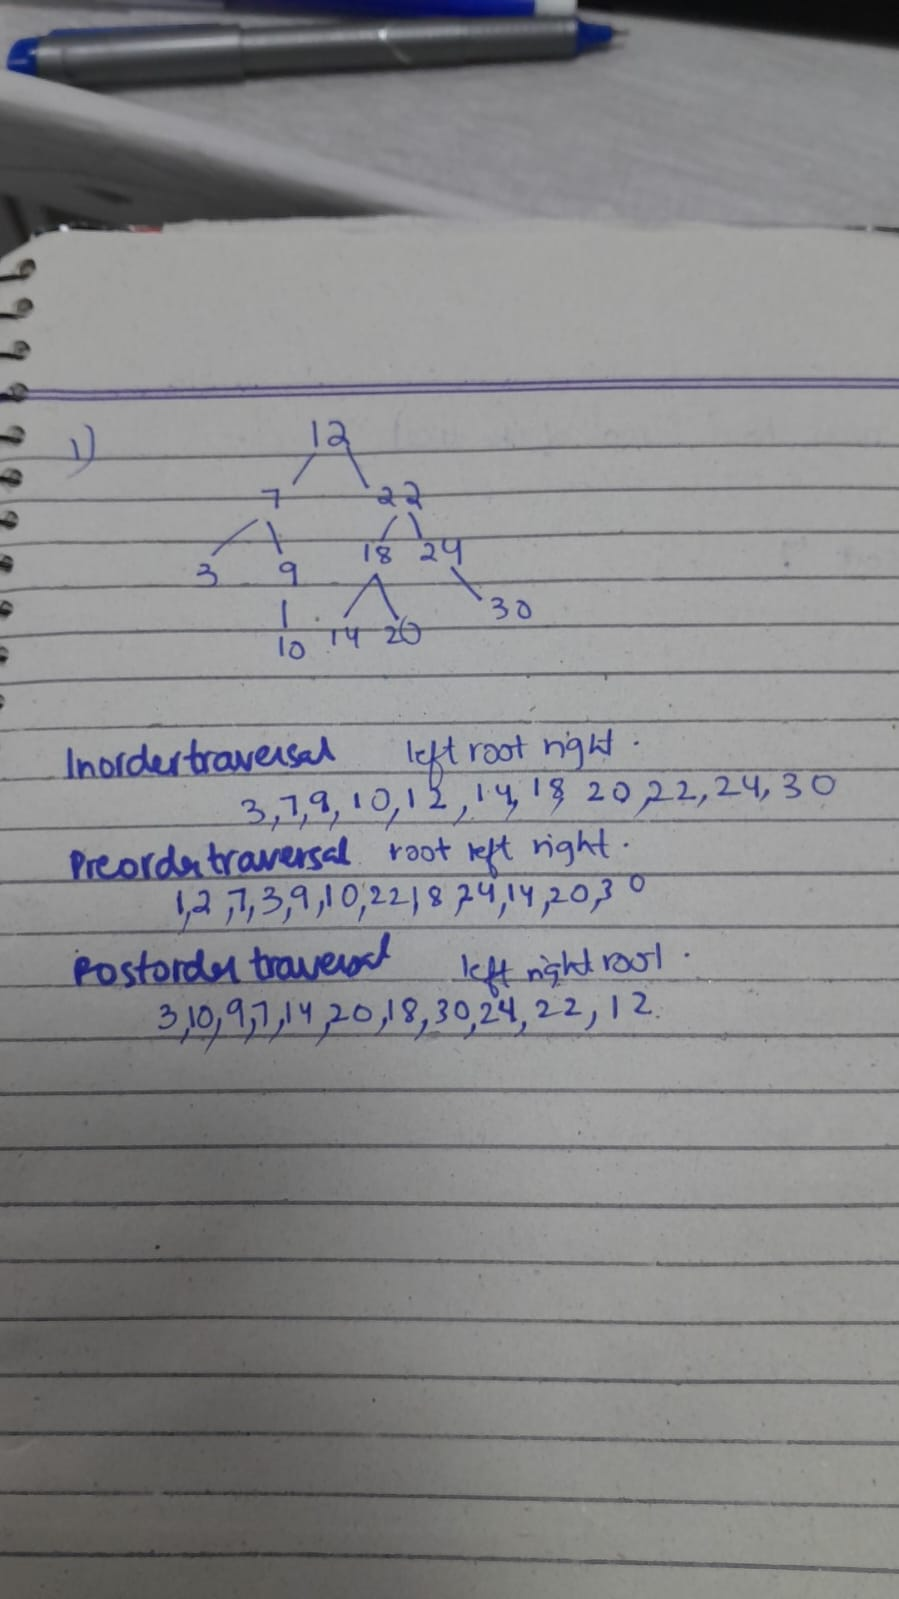 1)
12
7 22
3 9 18 24
10 14 20 30
Inordertraversal left root right.
3,7,9,10,12,14,18 20,22,24,30
Preordertraversal root left right.
1,2,7,3,9,10,22,18,24,14,20,30
Postorder traversal left right root.
3,10,9,7,14,20,18,30,24,22,12.